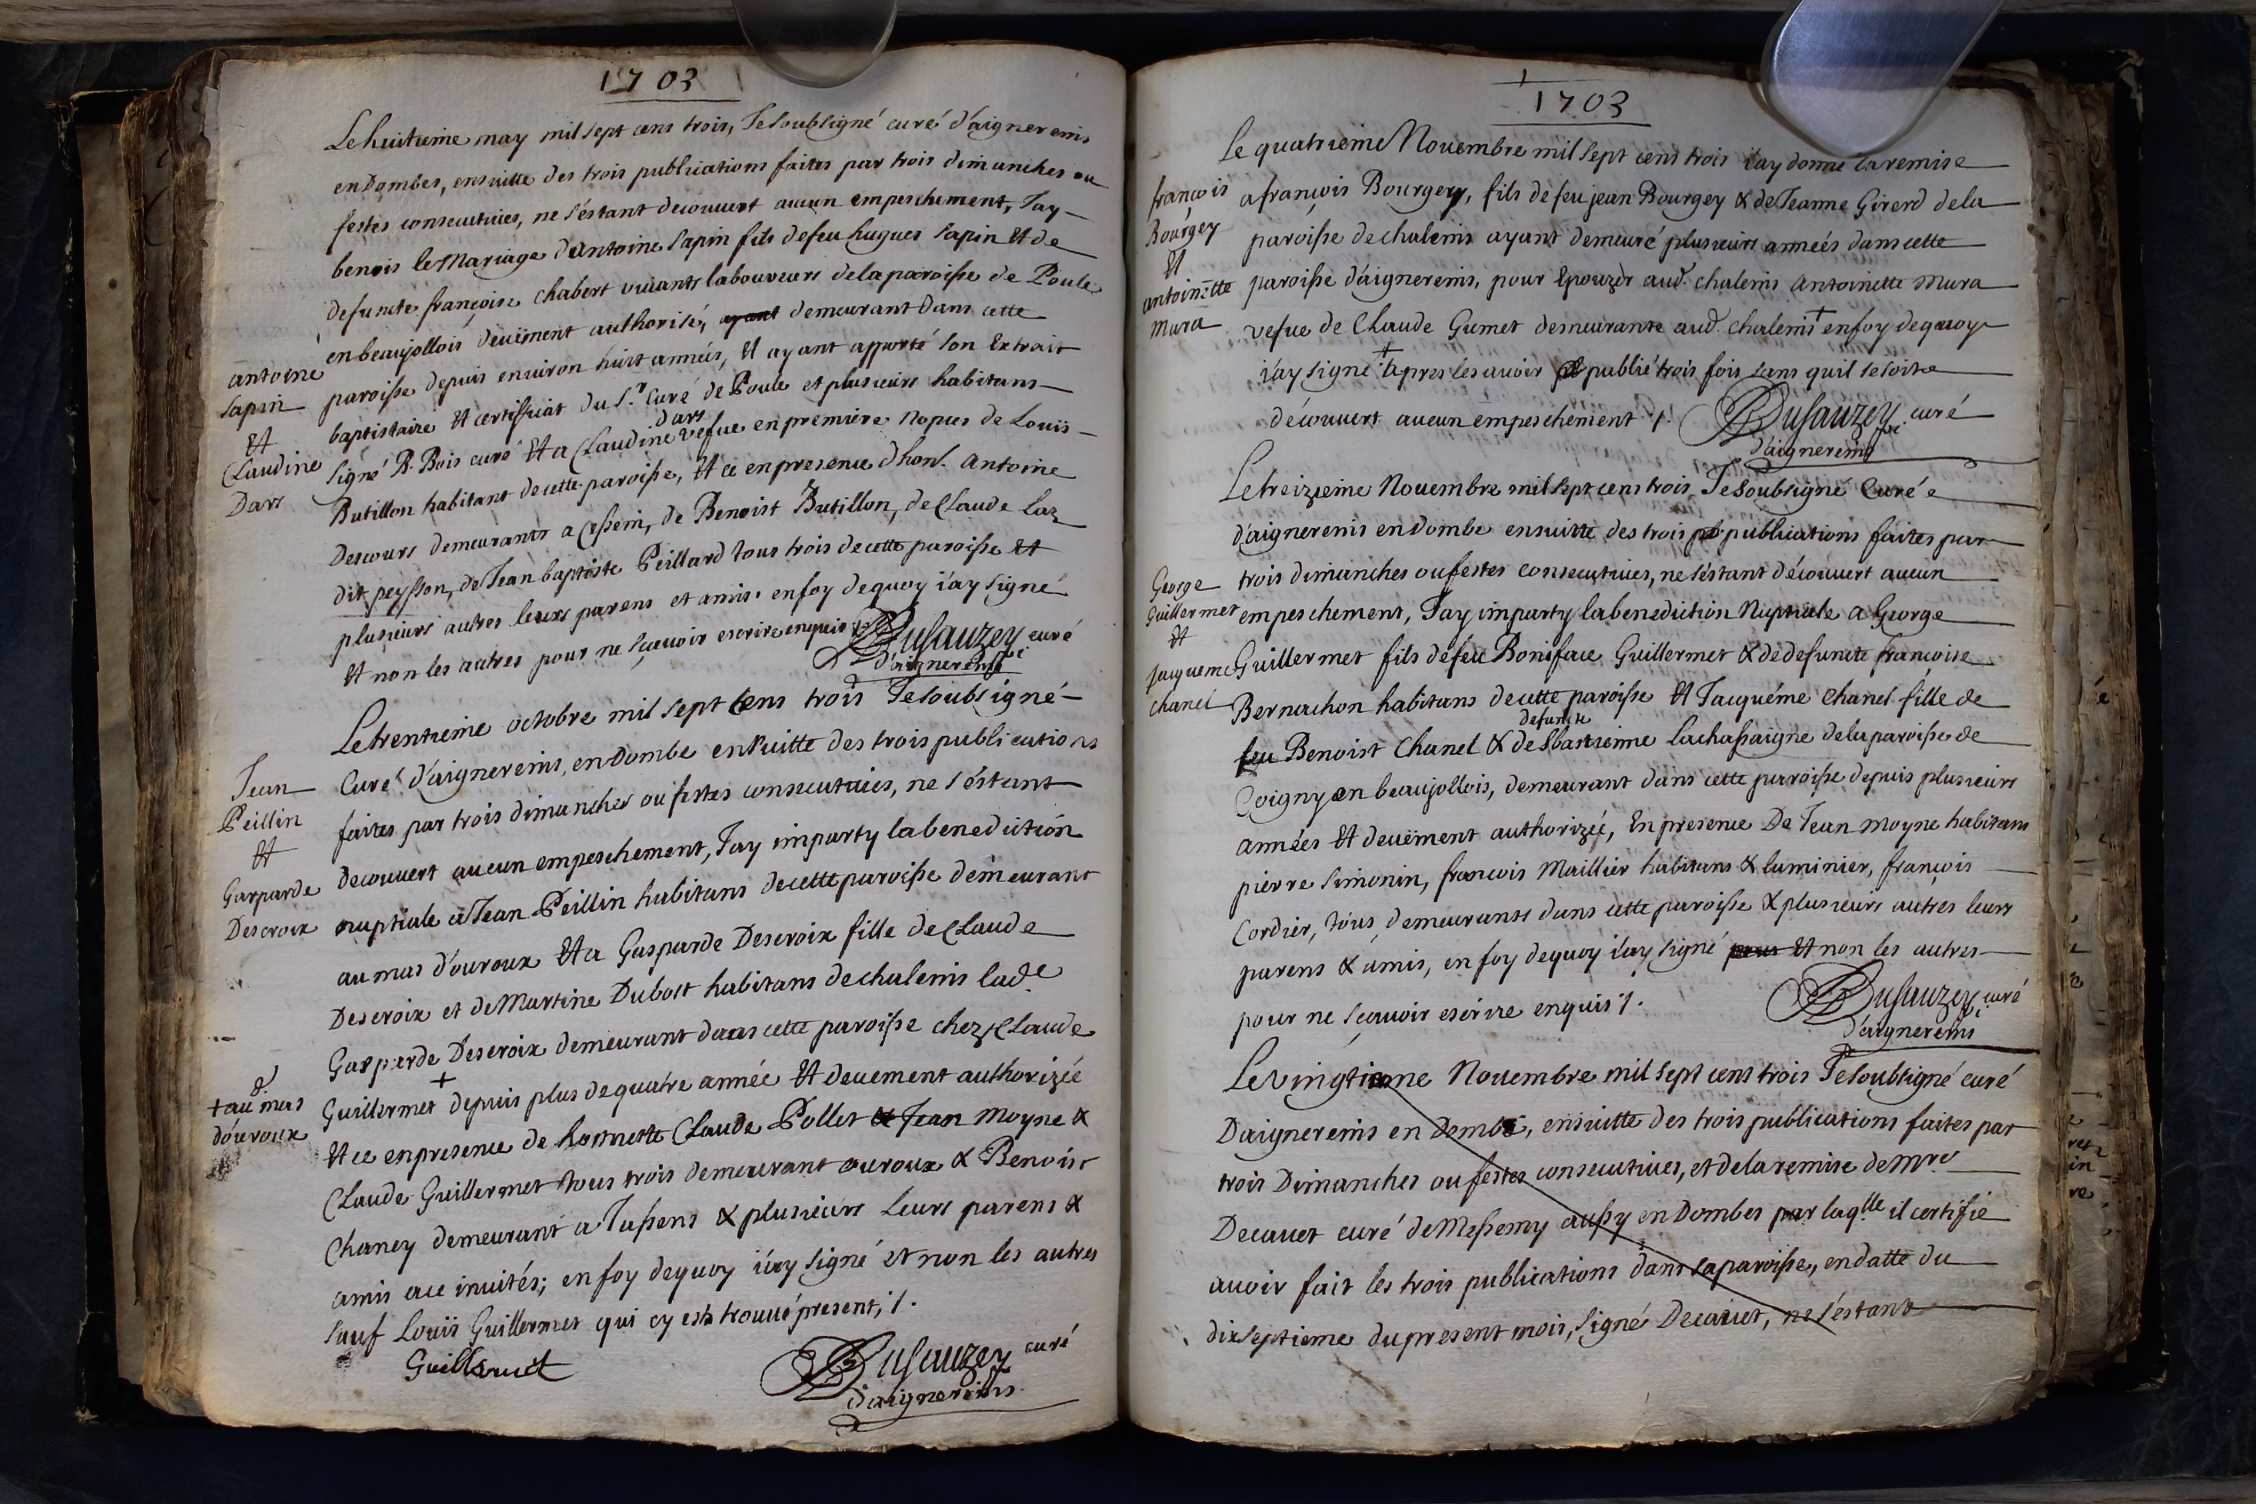 1703
Le huitieme may mil sept cens trois, Je soubsigné curé d'aignereins
en Dombes, ensuitte des trois publications faites par trois dimanches ou
festes consecutives, ne s'éstant decouvert aucun empeschement, J'ay
benis le Mariage d'Antoine Sapin fils de feu hugues Sapin Et de
defuncte françoise chabert vivants laboureurs de la paroisse de Poule
en beaujollois deuëment authorisé, ayant demeurant dans cette
antoine
Sapin
Et
Claudine
Dars
paroisse depuis environ huit années, Et ayant apporté son Extrait
baptistaire Et certifficat du S.r Curé de Poule et plusieurs habitans
signé P. Bois curé Et a Claudine Dars vefue en premiere nopces de Louis
Butillon habitant de cette paroisse, Et ce en presence d'hon. Antoine
Descours demeurants a Cessein, de Benoist Butillon, de Claude Laz
dit peysson, de Jean baptiste Peillard tous trois de cette paroisse Et
plusieurs autres leurs parens et amis. en foy dequoy i'ay signé
Et non les autres pour ne sçavoir escrire enquis
Dusauzey curé
d'aignereins
Le trentieme octobre mil sept cens trois Je soubsigné
Jean
Peillin
Et
Gasparde
Descroix
Curé d'aignereins, en Dombe ensuitte des trois publications
faites par trois dimanches ou festes consecutives, ne s'éstant
decouvert aucun empeschement, J'ay imparty la benediction
nuptiale a Jean Peillin habitans de cette paroisse démeurant
au mas d'ouroux Et a Gasparde Descroix fille de Claude
Descroix et de Martine Dubost habitans de chaleins lad.e
Gasparde Descroix demeurant dans cette paroisse chez Claude
Guillermet + depuis plus de quatre année Et deuement authorizée
+ aud. mas
d'ouroux
Et ce en presence de honnette Claude Pollet & Jean Moyne &
Claude Guillermet tous trois demeurant ouroux & Benoist
Chaney demeurant a Jassens & plusieurs leurs parens &
amis a ce invités; en foy dequoy i'ay signé et non les autres
sauf Louis Guillermet qui cy est trouvé present, /.
Guillermet
Dusauzey curé
d'aignereins
1703
Le quatrieme Novembre mil sept cens trois i'ay donné la remise
françois
Bourgey
Et
antoinette
Mura
a françois Bourgey, fils de feu jean Bourgey & de Jeanne Girerd de la
paroisse de chaleins ayant demeuré plusieurs années dans cette
paroisse d'aignereins, pour Epouzer aud. chaleins Antoinette Mura
vefue de Claude Gumet demeurante aud. chaleins + en foy dequoy
i'ay signé + apres les avoir publié trois fois sans quil se soit
découvert aucun empeschement /.
Dusauzey curé
d'aignereins
Le treizieme Novembre mil sept cens trois Je soubsigné Curé
d'aignereins en Dombe ensuitte des trois publications faites par
George
Guillermet
Et
Jacqueme
chanel
trois dimanches ou festes consecutives, ne s'éstant découvert aucun
empeschement, J'ay imparty la benediction Nuptiale a George
Guillermet fils de feu Boniface Guillermet & de defuncte francoise
Bernachon habitans de cette paroisse Et Jacquéme Chanel fille de
feu Benoist Chanel & de defuncte Sbastienne Lachassaigne de la paroisse de
Coigny en beaujollois, demeurant dans cette paroisse depuis plusieurs
années Et deuëment authorizée, En presence De Jean Moyne habitans
pierre Simonin, francois Maillier habitans & luminier, françois
Cordier, tous demeurants dans cette paroisse & plusieurs autres leurs
parens & amis, en foy dequoy i'ay signé pour Et non les autres
pour ne sçavoir escrire enquis /.
Dusauzey curé
d'aignereins
Le vingtieme Novembre mil sept cens trois Je soubsigné curé
D'aignereins en Dombe, ensuitte des trois publications faites par
trois Dimanches ou festes consecutives, et de la remise de Mre
Decavet curé de Messemy aussy en Dombes par laq.lle il certifie
avoir fait les trois publications dans sa paroisse, en datte du
dix septieme du present mois, signé Decavet, ne s'éstant